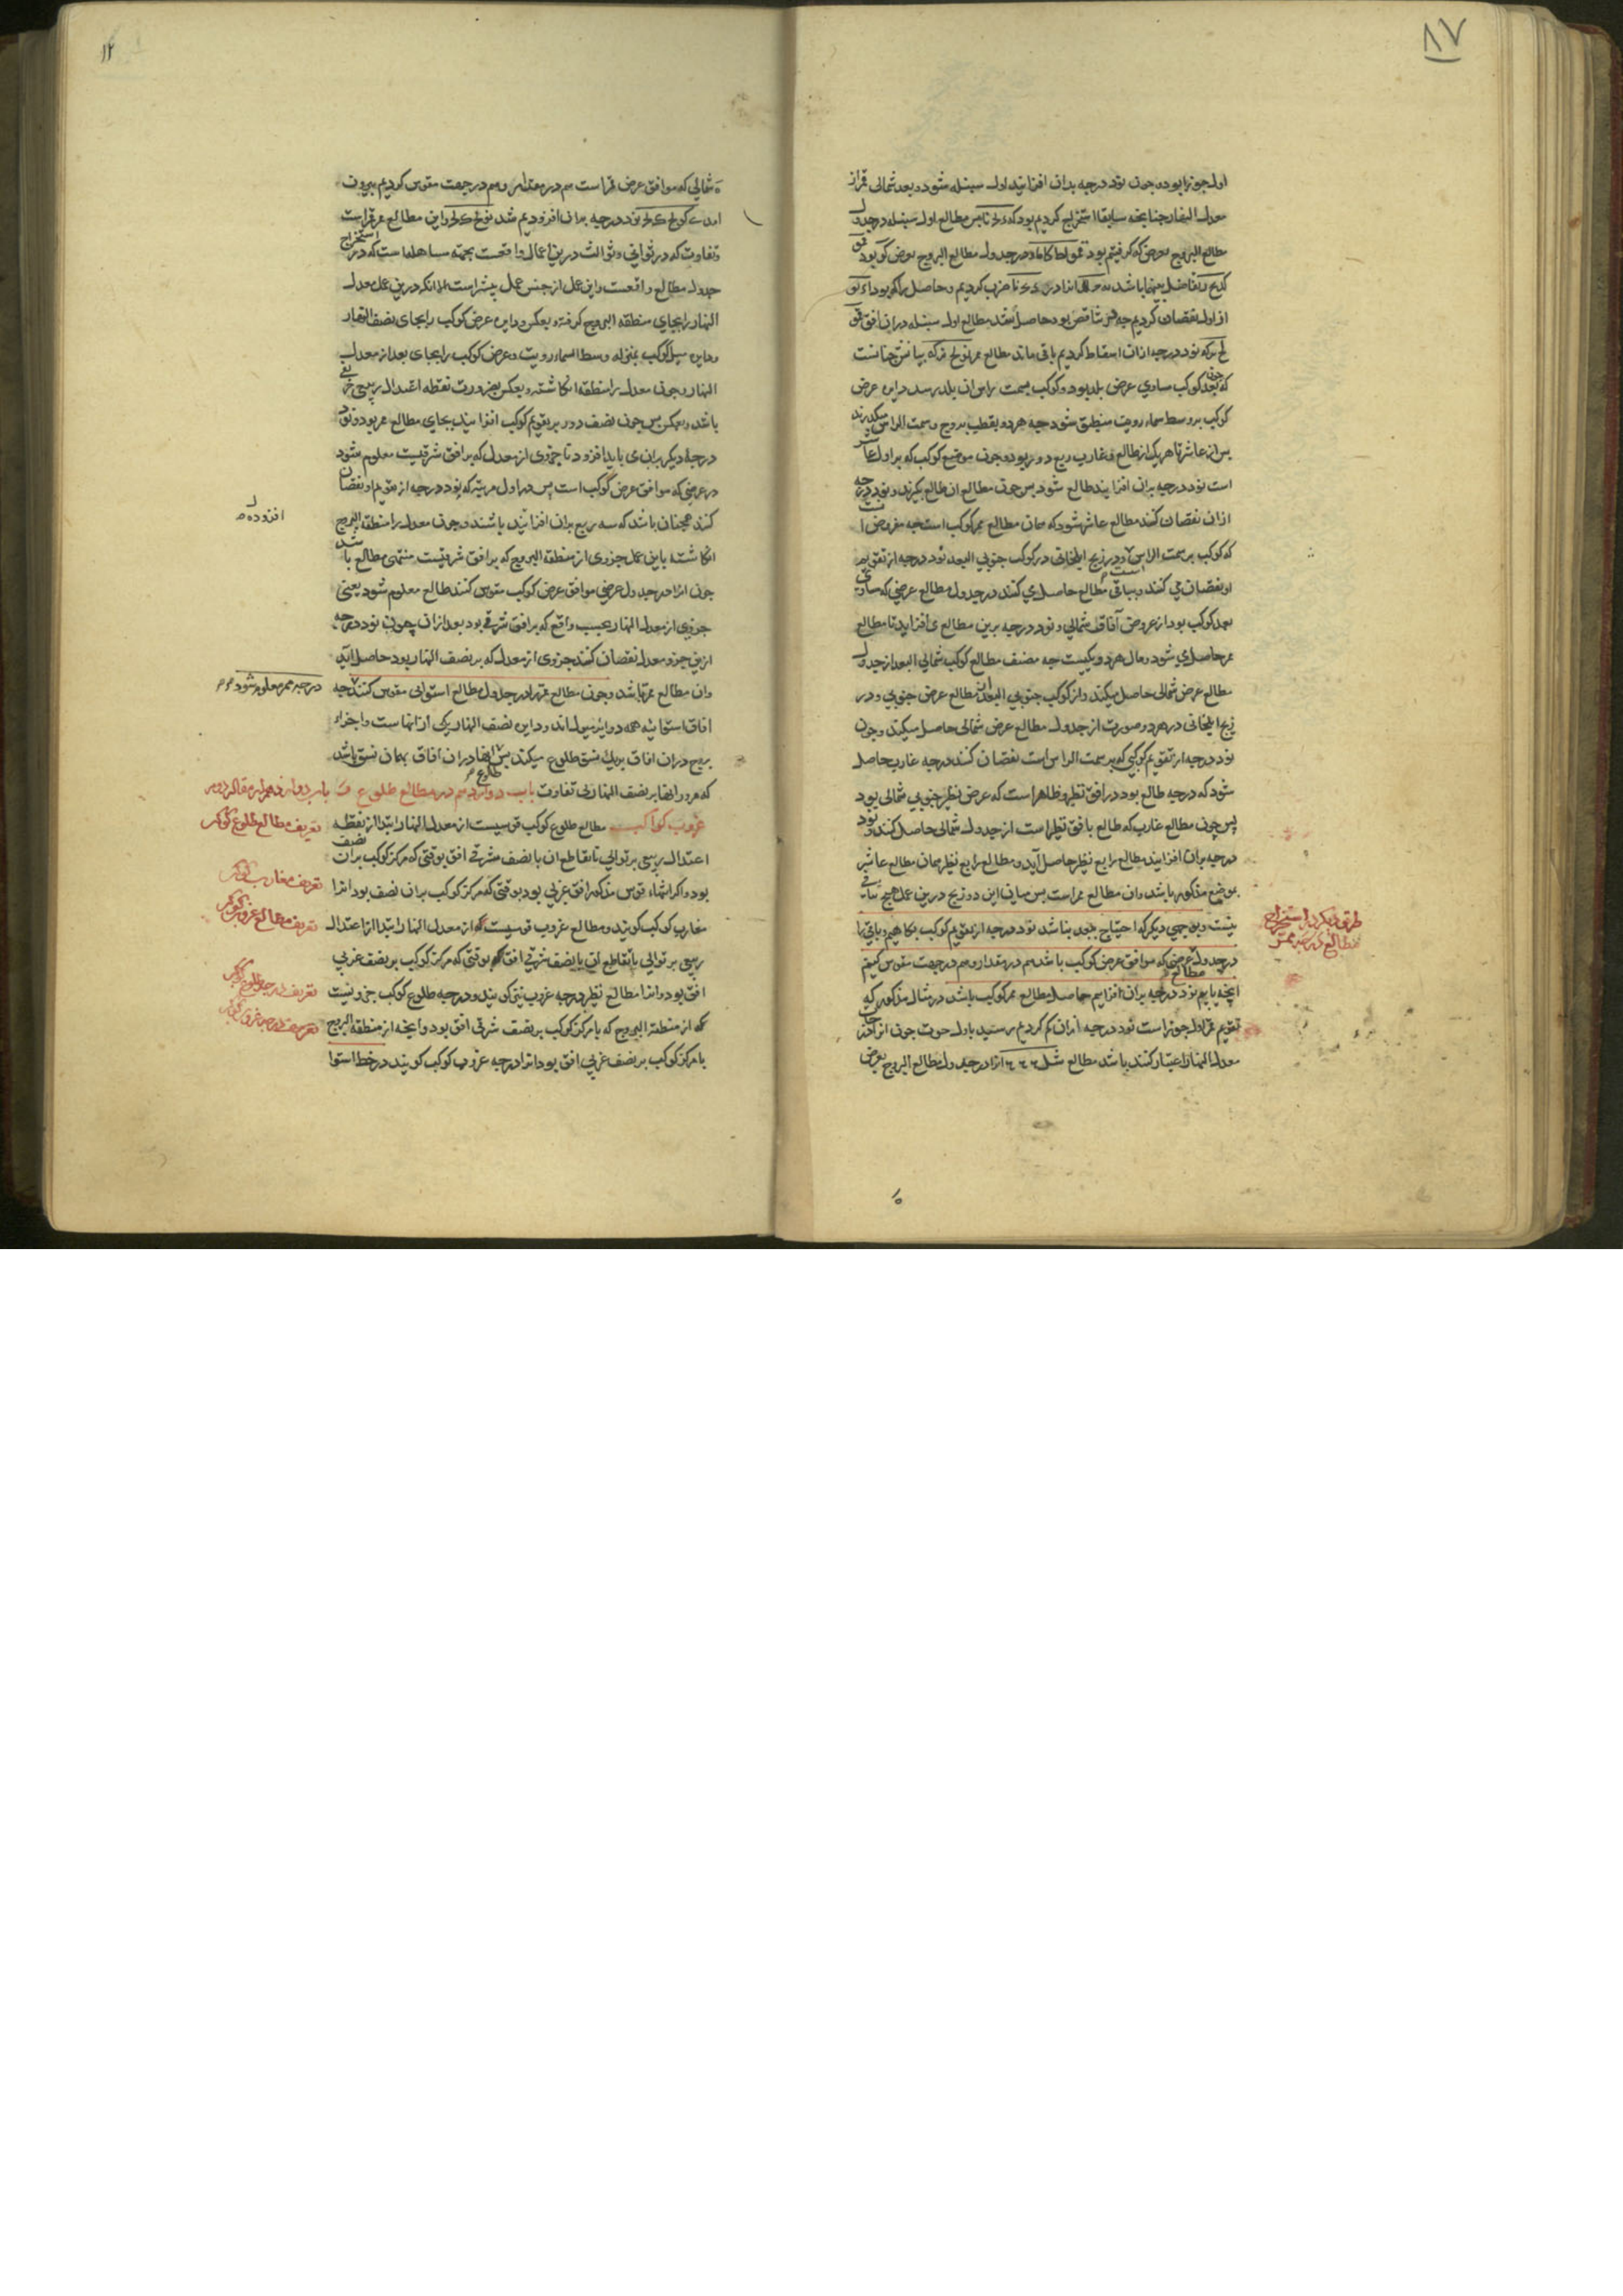 ۸۷
اول جوزا بود و چون نود درجه بدان افزائید اول سنبله شود و بعد شمالی قمر از
معدل النهار چنانچه سابقا استخراج کردیم بود مطالع اول سنبله در جدول
مطالع البروج بعرضی که گرفتیم بود در جدول مطالع البروج بعرض بود
ضرب کردیم و حاصل را که بود
از اول نقصان کردیم چه ناقص بود حاصل شد مطالع اول سنبله در ان افق
نود درجه از ان اسقاط کردیم باقی ماند مطالع ممر که بیانش چنانست
که چون بعد کوکب مساوی عرض بلد بود و کوکب بسمت راس ان بلد رسد دایره عرض
کوکب بر وسط سماء رویت منطبق شود چه هر دو بقطب بروج و سمت الراس میگذرند
پس از عاشر تا هر یک از طالع و غارب ربع دور بود و چون موضع کوکب که بر اول عاشر
است نود درجه بران افزایند طالع شود پس چون مطالع ان طالع بگیرند و نود درجه
ازان نقصان کنند مطالع عاشر شود که همان مطالع ممر کوکب است چه مفروض
که کوکب بر سمت الراس است و در زیج ایلخانی در کوکب جنوبی البعد نود درجه از تقویم
او نقصان می کنند و بباقی مطالع حاصل می کنند در جدول مطالع عرضی که مساوی
بعد کوکب بود از عروض آفاق شمالی و نود درجه برین مطالع می افزاید تا مطالع
ممر حاصل می شود و مال هر دو یکیست چه مصنف مطالع کوکب شمالی البعد از جدول
مطالع عرض شمالی حاصل میکند و از کوکب جنوبی البعد از مطالع عرض جنوبی و در
زیج ایلخانی در هر دو صورت از جدول مطالع عرض شمالی حاصل میکند و چون
نود درجه از تقویم کوکبی که بر سمت الراس است نقصان کنند درجه غارب حاصل
شود که درجه طالع بود در افق نظیر و ظاهر است که عرض نظیر جنوبی شمالی بود
پس چون مطالع غارب که طالع بافق نظیر است از جدول شمالی حاصل کنند و نود
درجه بران افزایند مطالع رابع نظیر حاصل آید و مطالع رابع نظیر همان مطالع عاشر
موضع مذکور باشد و ان مطالع ممر است پس میان این دو زیج درین عمل هیچ تنافی
نیست و بوجهی دیگر که احتیاج بجیب نباشد نود درجه از تقویم کوکب بکاهیم و باقی را
در جدول عرضی که موافق عرض کوکب باشد هم در مقدار و هم در جهت مقوس کنیم
انچه یابیم نود درجه بران افزایم حاصل مطالع ممر کوکب باشد در مثال مذکور که
تقویم قمر اول جوزا است نود درجه ازان کم کردیم رسید باول حوت چون از
معدل النهار اعتبار کنند باشد مطالع انرا در جدول مطالع البروج بعرض
طریق دیگر در استخراج
مطالع درجه ممر
۱۲
شمالی که موافق عرض قمر است هم در مقدار و هم در جهت مقوس کردیم بیرون
نود درجه بران افزودیم شد و این مطالع ممر قمر است
و تفاوت که در ثوانی و ثوالث درین اعمال واقعست بجهة مساهله است که در استخراج
جدول مطالع واقعست و این عمل از جنس عمل پیشتر است الا انکه درین عمل معدل
النهار را بجای منطقه البروج گرفته و بعکس و دایره عرض کوکب را بجای نصف النهار
و دایره میل کوکب بمنزله وسط السماء رویت و عرض کوکب را بجای بعد از معدل
النهار و چون معدل را منطقه انگاشته و بعکس بضرورت نقطه اعتدال ربیعی
باشد و بعکس پس چون نصف دور بر تقویم کوکب افزایند بجای مطالع ممر بود و نود
درجه دیگر بران می باید افزود تا جزوی از معدل که بر افق شرقیست معلوم شود
در عرضی که موافق عرض کوکب است پس در اول مرتبه که نود درجه از تقویم او نقصان
کنند همچنان باشد که سه ربع بران افزائید باشند و چون معدل را منطقه البروج
انگاشته باین عمل جزوی از منطقه البروج که بر افق شرقیست منتهی مطالع باشد
چون انرا در جدول عرضی موافق عرض کوکب مقوس کنند طالع معلوم شود یعنی
جزوی از معدل النهار بحسب واقع که بر افق شرقی بود بعد از ان چون نود درجه
ازین جزو معدل نقصان کنند جزوی از معدل که بر نصف النهار بود حاصل اید
و ان مطالع ممر باشد و چون مطالع ممر را در جدول مطالع استوائی مقوس کنند چه
افاق استوائیه همه دوایر میول اند و دایره نصف النهار یکی از انها است و اجزاء
بروج دران افاق بریک نسق طلوع میکند پس ایضا دران افاق بهمان نسق باشد
که مرور ایضا بر نصف النهار بی تفاوت باب دوازدهم در مطالع طلوع و
غروب کواکب مطالع طلوع کوکب قوسیست از معدل النهار ابتدا از نقطه
اعتدال ربیعی بر توالی تا تقاطع ان با نصف مشرقی افق بوقتی که مرکز کوکب بران نصف
بود و اگر انتهاء قوس مذکور افق غربی بود بوقتی که مرکز کوکب بران نصف بود انرا
مغارب کوکب گویند و مطالع غروب قوسیست از معدل النهار ابتدا از اعتدال
ربیعی بر توالی تا تقاطع ان با نصف شرقی افق بوقتی که مرکز کوکب بر نصف غربی
افق بود و انرا مطالع نظیر درجه غروب نیز گویند و درجه طلوع کوکب جزویست
که از منطقه البروج که با مرکز کوکب بر نصف شرقی افق بود و انچه از منطقه البروج
با مرکز کوکب بر نصف غربی افق بود انرا درجه غروب کوکب گویند در خط استوا
افزوده
درجه ممر معلوم شود
باب دوازدهم از مقاله دوم
تعریف مطالع طلوع کوکب
تعریف مغارب کوکب
تعریف مطالع غروب کوکب
تعریف درجه طلوع کوکب
تعریف درجه غروب کوکب